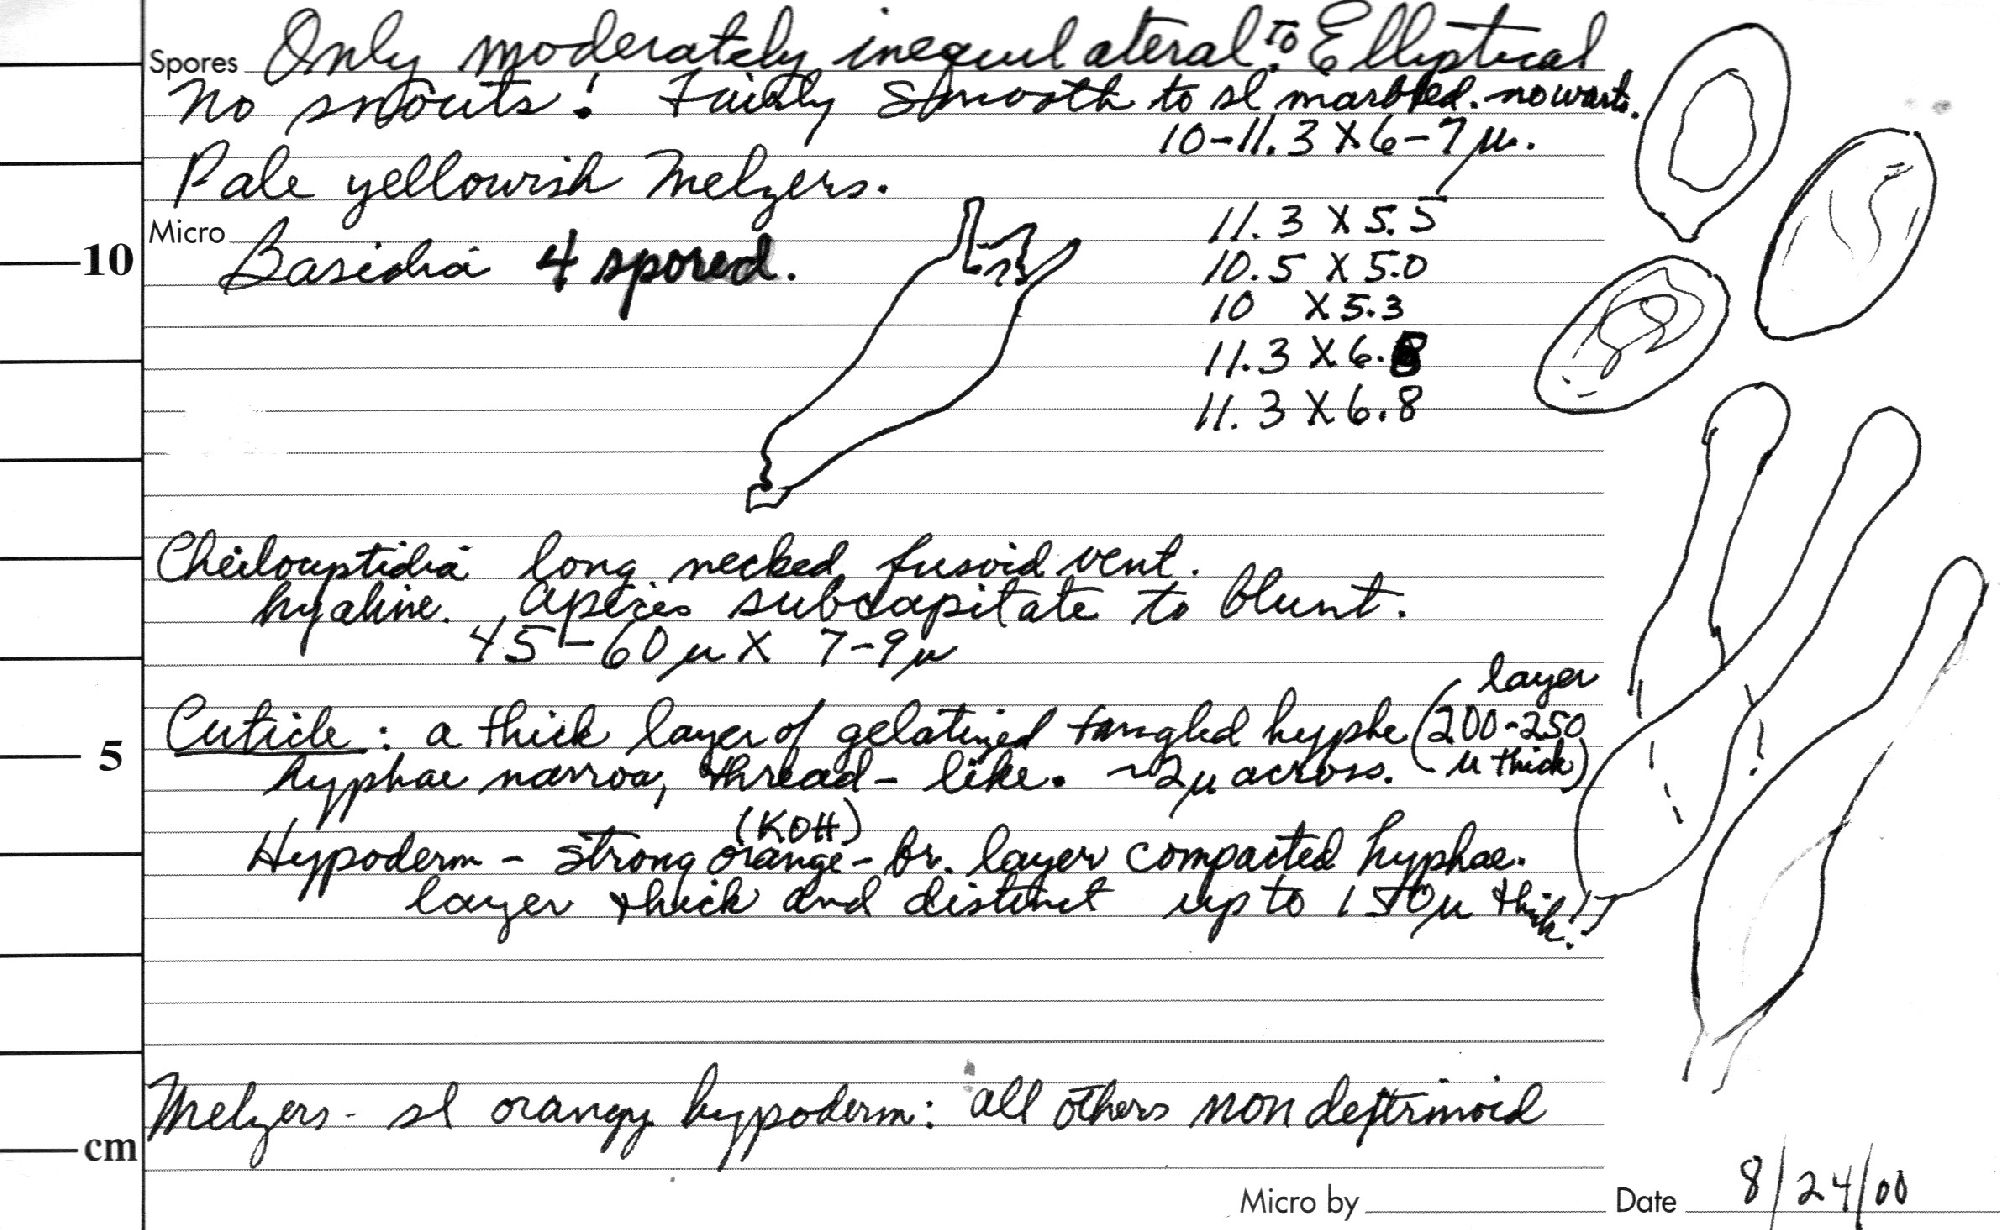 Spores Only moderately inequilateral to Elliptical
No snouts! Fairly Smooth to sl marbled. no warts.
10-11.3 X 6-7 µ.
Pale yellowish Melzers.
Micro Basidia 4 spored.
11.3 X 5.5
10.5 X 5.0
10 X 5.3
11.3 X 6.
11.3 X 6.8
10
Cheilocystidia long necked fusoid vent.
hyaline. apices subcapitate to blunt.
45-60 µ X 7-9 µ
Cuticle: a thick layer of gelatinized tangled hyphe (layer
200-250
µ thick)
hyphae narrow, thread-like. ~2µ across.
5
(KOH)
Hypoderm - strong orange-br. layer compacted hyphae.
layer thick and distinct up to 150µ thick!
Melzers - sl orangy hypoderm: all others non dextrinoid
cm
Micro by
Date 8/24/00